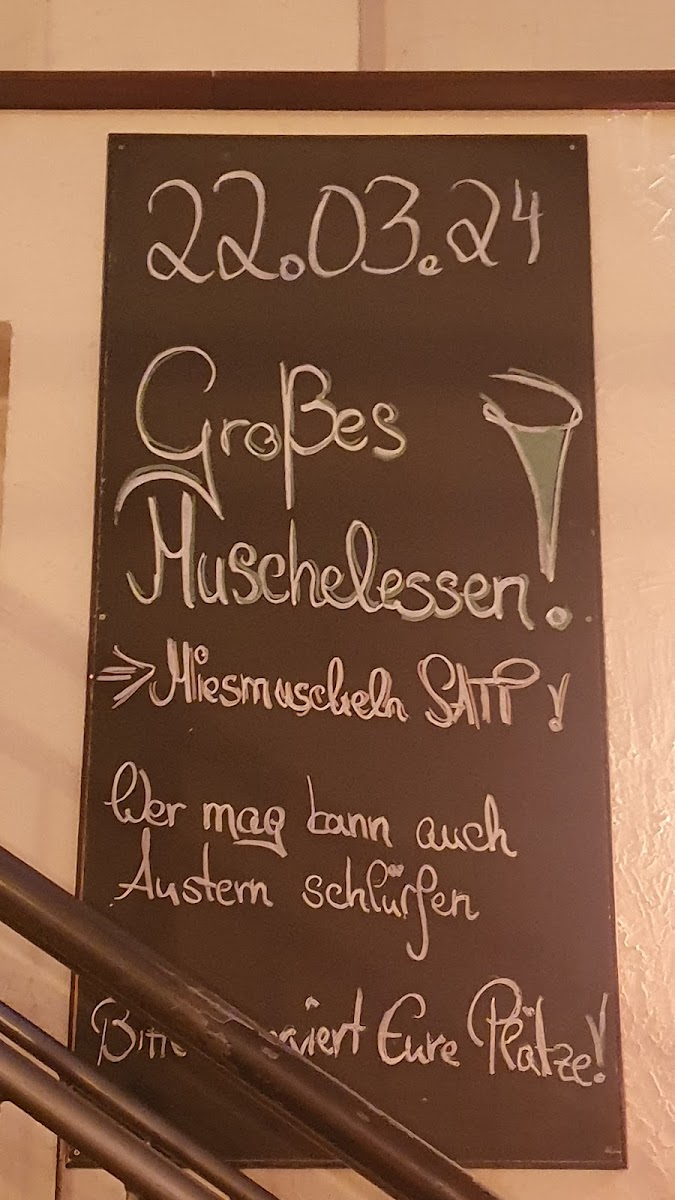 22.03.24
Großes
Muschelessen!
=> Miesmuscheln SATT!
Wer mag kann auch
Austern schlürfen
Bitte Eure Plätze!